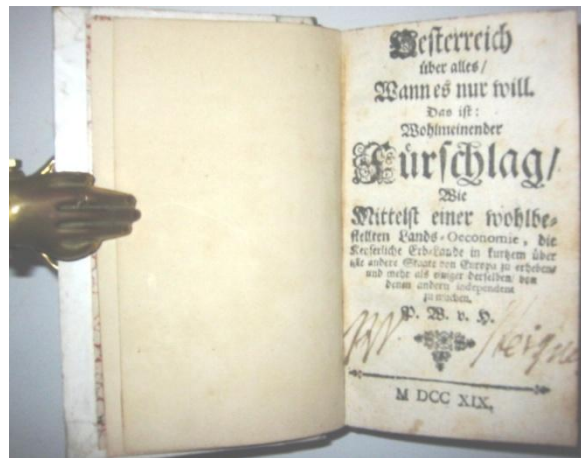 Oesterreich
über alles/
Wann es nur will.
Das ist:
Wohlmeinender
Fürschlag/
Wie
Mittelst einer wohlbe-
stellten Lands-Oeconomie, die
Kayserliche Erb-Lande in kurtzem über
alle andere Staate von Europa zu erheben/
und mehr als einiger derselben/ von
denen andern independent
zu machen.
P. W. v. H.
M DCC XIX.